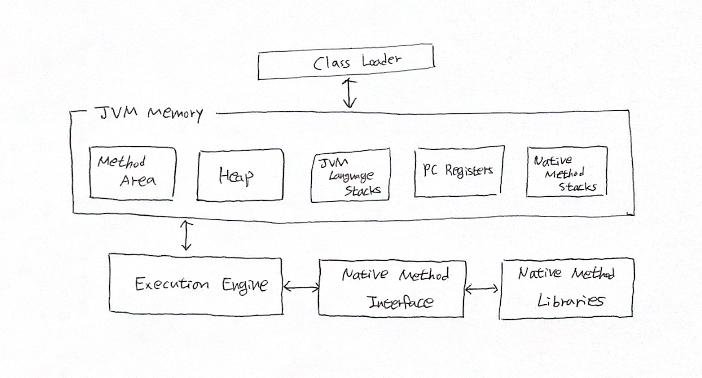 Class Loader
JVM Memory
Method
Area
Heap
JVM
Language
Stacks
PC Registers
Native
Method
Stacks
Execution Engine
Native Method
Interface
Native Method
Libraries